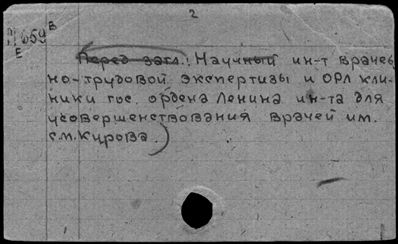 2
659 В
Е
Перед загл.: Научный ин-т врачеб
но-трудовой экспертизы и ОРЛ кли-
ники гос. ордена Ленина ин-та для
усовершенствования врачей им.
С.М.Кирова.)